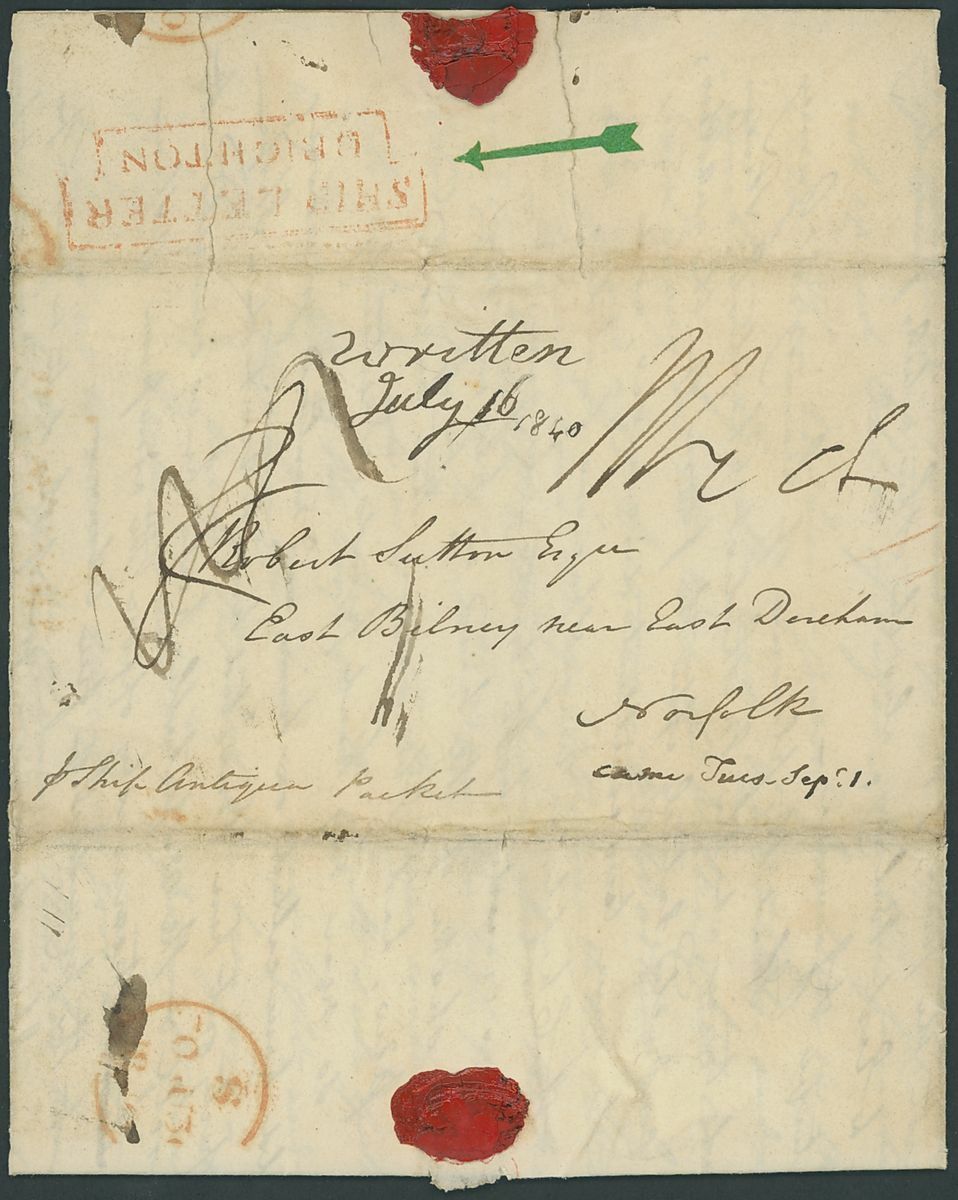 SHIP LETTER
BRIGHTON
written
July 16
1840
Robert Sutton Esqre
East Bilney near East Dereham
Norfolk
p Ship Antigua Packet
came Tues. Sept. 1.
S